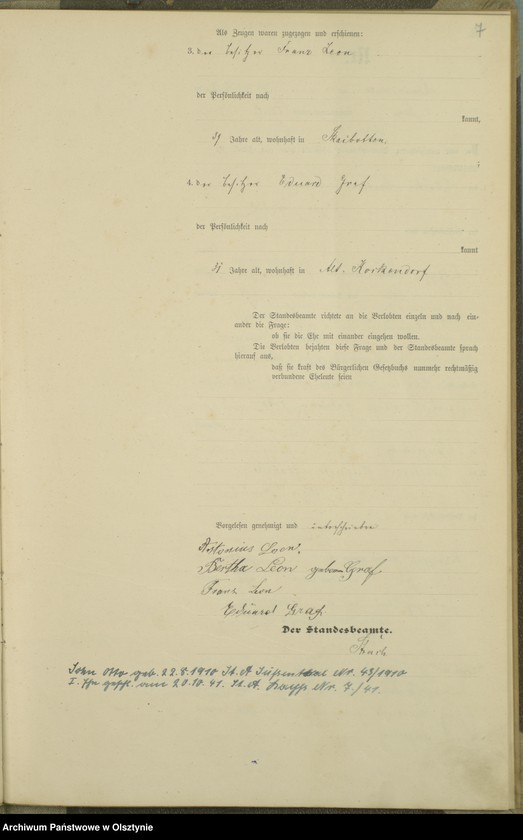 7
Als Zeugen waren zugezogen und erschienen:
3. der Besitzer Franz Leon
der Persönlichkeit nach
kannt,
Jahre alt, wohnhaft in
4. der Besitzer Eduard Graf
der Persönlichkeit nach
kannt
Jahre alt, wohnhaft in Alt-Kockendorf
Der Standesbeamte richtete an die Verlobten einzeln und nach ein-
ander die Frage:
ob sie die Ehe mit einander eingehen wollen.
Die Verlobten bejahten diese Frage und der Standesbeamte sprach
hierauf aus,
daß sie kraft des Bürgerlichen Gesetzbuchs nunmehr rechtmäßig
verbundene Eheleute seien
Vorgelesen genehmigt und unterschrieben
Antonius Leon.
Bertha Leon geborene Graf
Franz Leon
Eduard Graf
Der Standesbeamte.
Sohn Otto geb. 22.8.1910 St. A. Süßenthal Nr. 43/1910
I. Ehe geschl. am 20.10.41. St. A. Nr. 7/41.
Archiwum Państwowe w Olsztynie